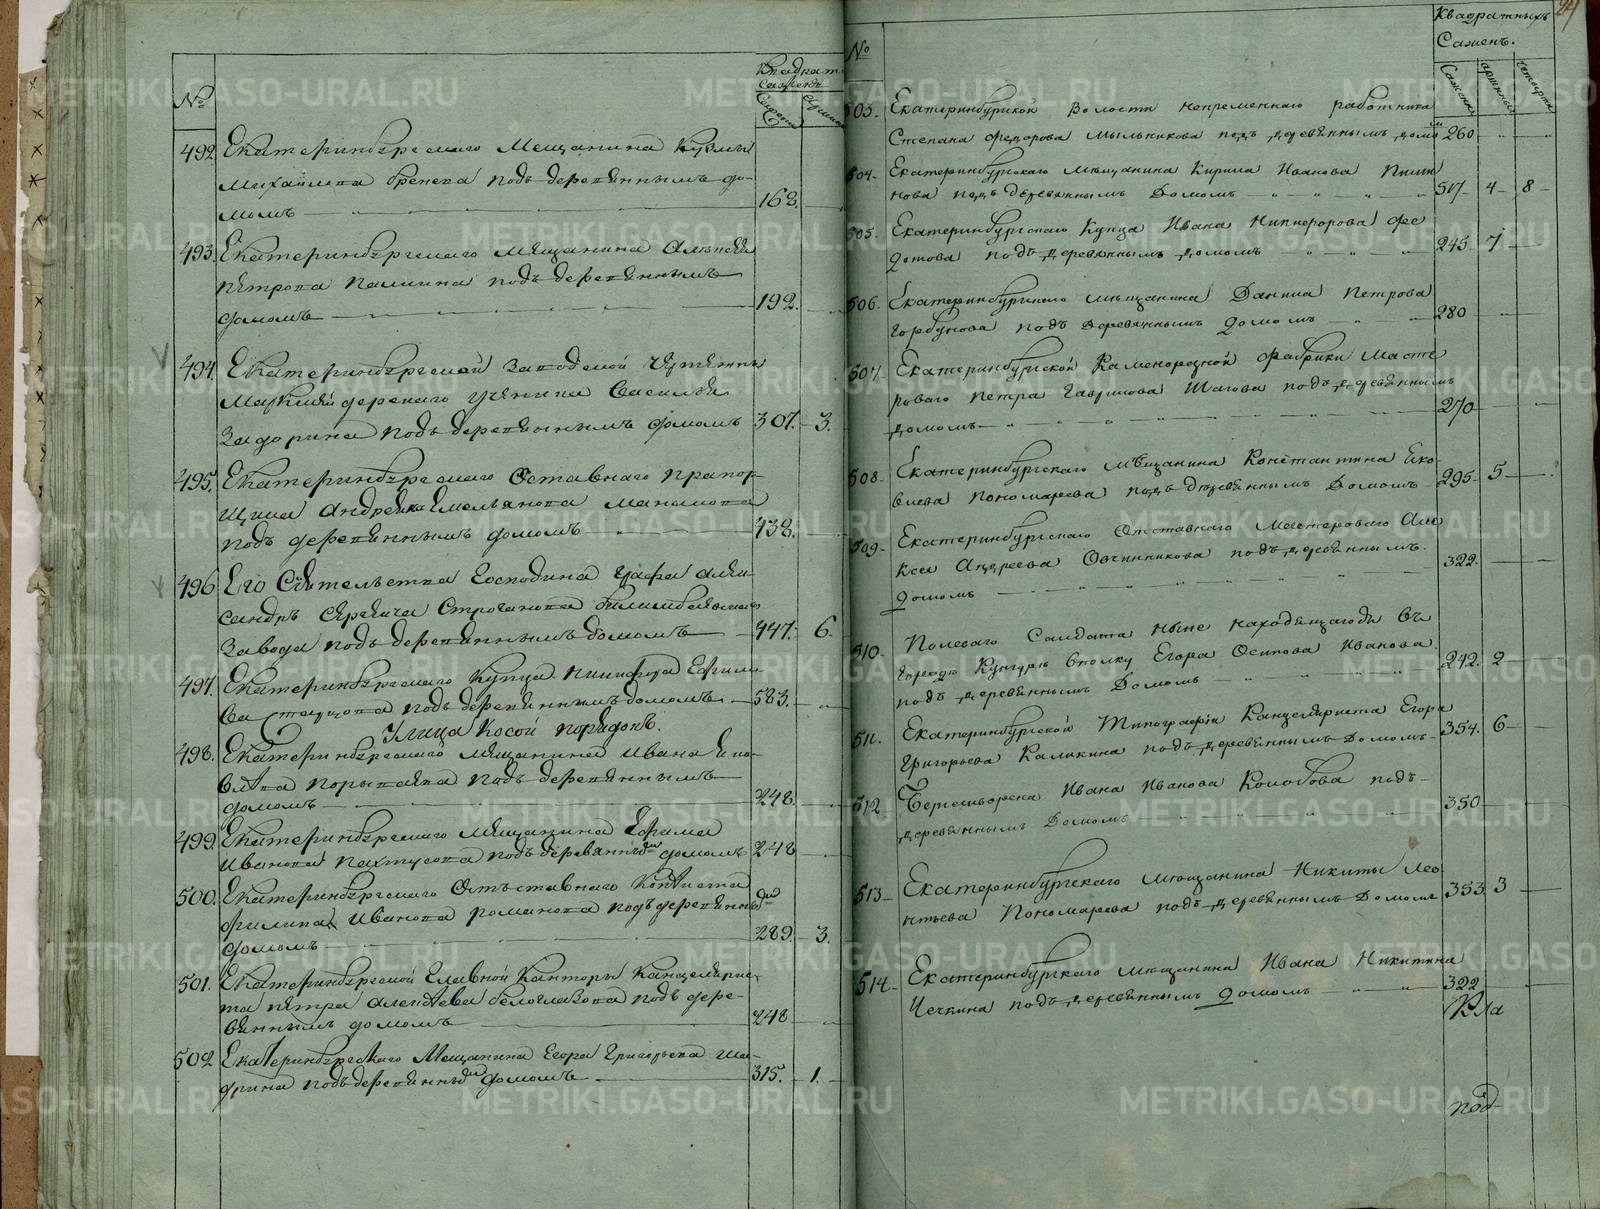 №
Квадрат.
саженъ
492. Екатеринбургскаго Мещанина Кузмы
Михаилова подъ деревяннымъ до-
момъ 168.
493. Екатеринбургскаго Мещанина Алексея
Петрова Палкина подъ деревяннымъ
домомъ 192.
494. Екатеринбургской Заводской
ученика Василья
подъ деревяннымъ домомъ 307. 3.
495. Екатеринбургскаго Отставнаго Прапор-
щика Андрея Емельянова
подъ деревяннымъ домомъ 438.
496 Его Сіятельства Господина Графа Алек-
сандръ Сергеича Строганова Билимбаевскаго
Завода подъ деревяннымъ домомъ 447. 6.
497. Екатеринбургскаго Купца
подъ деревяннымъ домомъ 583.
Улица Косой порядокъ.
498. Екатеринбургскаго Мещанина Ивана Яко-
влева подъ деревяннымъ
домомъ 248.
499. Екатеринбургскаго Мещанина Ефима
Иванова Пахтусова подъ деревяннымъ домомъ 248
500. Екатеринбургскаго Отъставнаго Копѣиста
Филипа Иванова Романова подъ деревяннымъ
домомъ 289. 3.
501. Екатеринбургской Главной Канторы Канцелярис-
та Петра Алексѣева Белоглазова подъ дере-
вяннымъ домомъ 248
502 Екатеринбургскаго Мещанина Егора Григорьева Ша-
дрина подъ деревяннымъ домомъ 315. 1.
24
№
Квадратныхъ
Саженъ.
Сажени аршины четверти
503. Екатеринбургской Волости непременнаго работника
Степана Федорова Мыльникова подъ деревяннымъ домомъ 260
504. Екатеринбургскаго мѣщанина Кирила Иванова
подъ деревяннымъ Домомъ 517 4 8
505 Екатеринбургскаго Купца Ивана Никифорова Фе
дотова подъ деревяннымъ домомъ 245 7
506. Екатеринбургскаго мѣщанина Данила Петрова
Горбунова подъ деревяннымъ Домомъ 280
507. Екатеринбургской Каменорезной Фабрики Масте
роваго Петра Гаврилова Шагова подъ деревяннымъ
домомъ 270
508. Екатеринбургскаго мѣщанина Константина Яко-
влева Пономарева подъ деревяннымъ Домомъ 295 5
509. Екатеринбургскаго Отставнаго Мастероваго Але
ксея Андреева Овчинникова подъ деревяннымъ
Домомъ 322.
510. Полеваго Салдата ныне находящагося въ
городе Кунгурѣ вполку Егора Осипова Иванова
подъ деревяннымъ Домомъ 242. 2
511. Екатеринбургской Типографіи Канцеляриста Егора
Григорьева Каликина подъ деревяннымъ Домомъ 354. 6
512 Берггешворена Ивана Иванова Колобова подъ
деревяннымъ Домомъ 350
513 Екатеринбургскаго мѣщанина Никиты Лео
нтьева Пономарева подъ деревяннымъ Домомъ 353. 3
514. Екатеринбургскаго мѣщанина Ивана Никитина
Чечкина подъ деревяннымъ Домомъ 322
под-